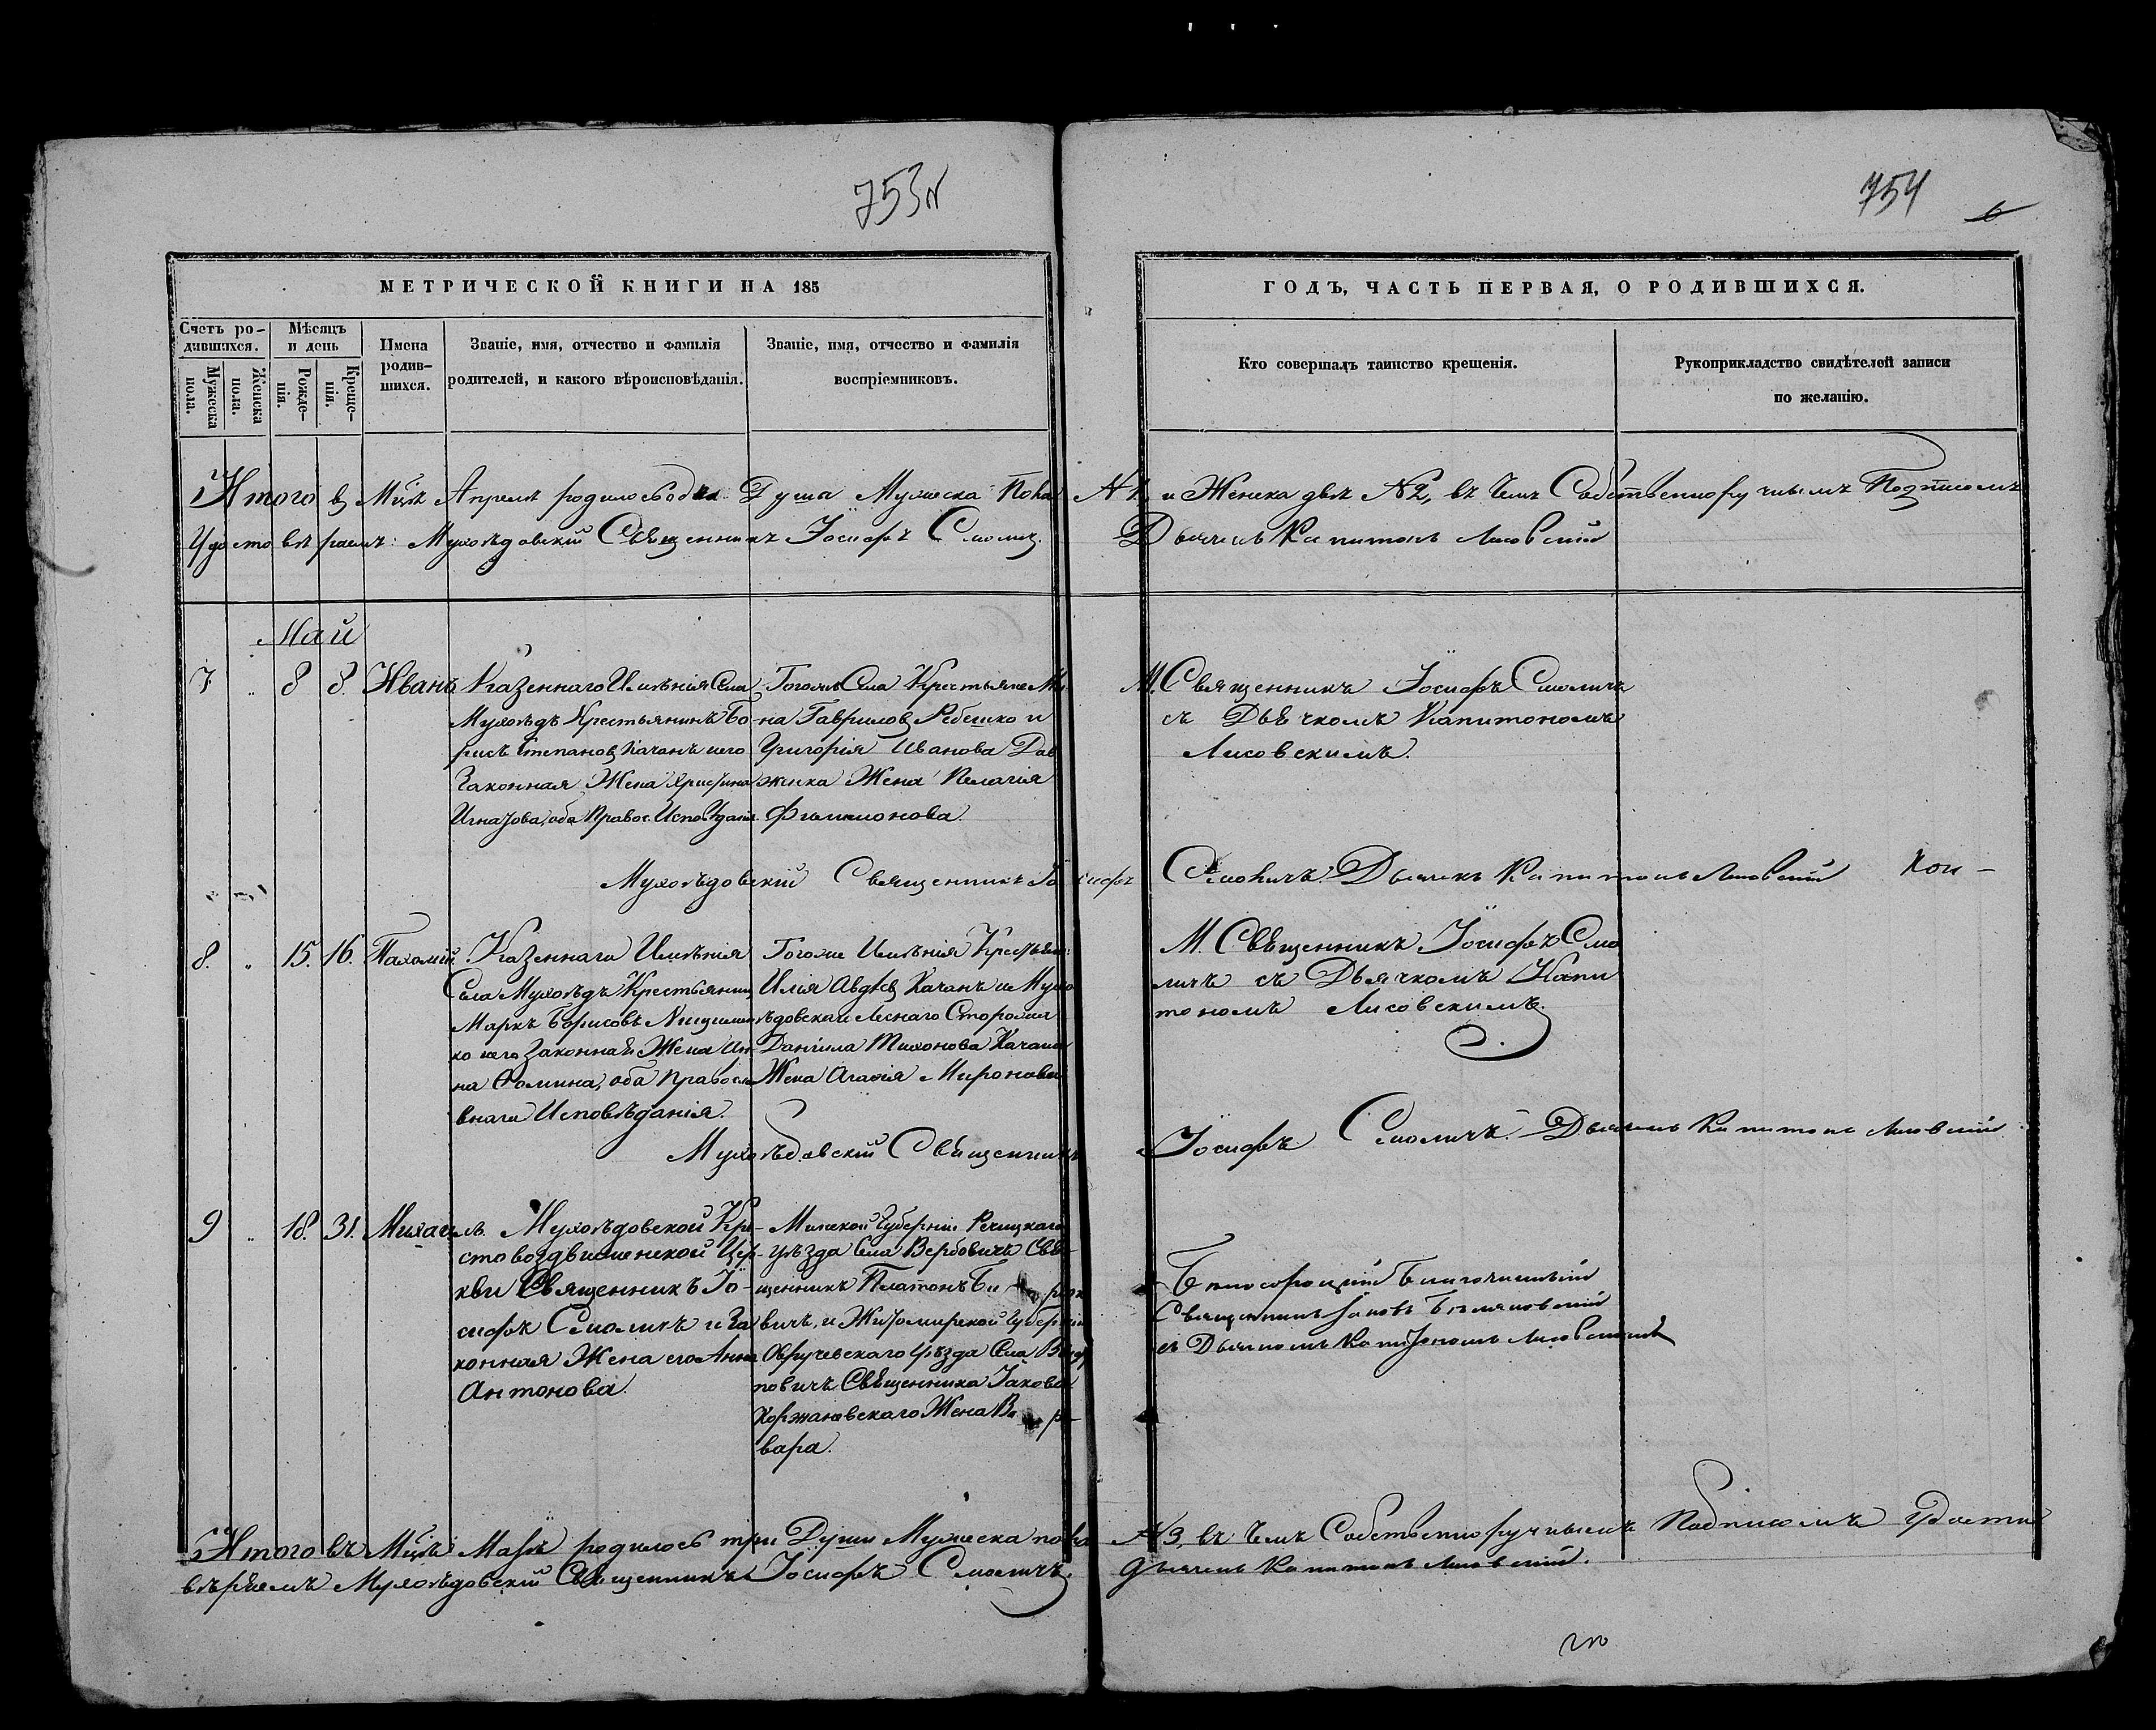 753
754
6
МЕТРИЧЕСКОЙ КНИГИ НА 185
ГОДЪ, ЧАСТЬ ПЕРВАЯ, О РОДИВШИХСЯ.
Счетъ ро-
дившихся.
Мужеска
пола.
Женска
пола.
Мѣсяцъ
и день
Рожде-
нія.
Креще-
нія.
Имена
родив-
шихся.
Званіе, имя, отчество и фамилія
родителей, и какого вѣроисповѣданія.
Званіе, имя, отчество и фамилія
воспріемниковъ.
Кто совершалъ таинство крещенія.
Рукоприкладство свидѣтелей записи
по желанію.
Итого в Мцѣ Апрелѣ родилось одна Душа Мужеска Пола № 1, и Женска двѣ № 2, въ чемъ Собственноручнымъ Подписомъ
Удостовѣряемъ: Мухоѣдовскій Священникъ Іосифъ Смолич. Дьячекъ Капитонъ Лисовскій
Май
7 „ 8 8. Иванъ
Казеннаго Имѣнія Села
Мухоѣдъ Крестьянинъ Бо-
рисъ Степановъ Качанъ и его
Законная Жена Христина
Игнатова, оба Правос. Исповѣданія.
Гоголевъ Села Крестьяне
на Гаврилов Ребешко и
Григорія Иванова
жика Жена Пелагія
Филимонова.
М. Священникъ Іосифъ Смоличъ
съ Дьячкомъ Капитономъ
Лисовскимъ.
Мухоѣдовскій Священникъ Іосифъ Смоличъ. Дьячекъ Капитонъ Лисовскій
8. „ 15. 16. Пахомій
Казеннаго Имѣнія
Села Мухоѣдъ Крестьянинъ
Маркъ Борисовъ
ко и его Законная Жена Ан-
на Фомина, оба Правосла-
внаго Исповѣданія.
Имѣнія
Илія Авдѣев Качанъ и Мухо
ѣдовскаго Леснаго Сторожа
Даніила Тихонова Качана
Жена Агафія Миронова
М. Священникъ Іосифъ Смо
личъ съ Дьячкомъ Капи
тономъ Лисовскимъ.
Мухоѣдовскій Священникъ Іосифъ Смоличъ. Дьячекъ Капитонъ Лисовскій
9 „ 18. 31. Михаилъ.
Мухоѣдовской Кре-
стовоздвиженской Цер-
кви Священникъ Іо-
сифъ Смоличъ и За
конная Жена его Анна
Антонова.
Минской Губерніи Речицкаго
уѣзда Села Вербовичъ Свя-
щенникъ Платонъ
вичъ, и Житомирской Губерніи
Овручевскаго Уѣзда Села
повичъ Священника Іакова
Коржановскаго Жена Вар-
вара.
Благочинный
Священникъ Іаковъ
съ Дьячкомъ Капитономъ Лисовскимъ
Итого въ Мцѣ Маѣ родилось три Души Мужеска пола № 3, въ чемъ Собственноручнымъ Подписомъ Удосто
вѣряемъ Мухоѣдовскій Священникъ Іосифъ Смоличъ. Дьячекъ Капитонъ Лисовскій.